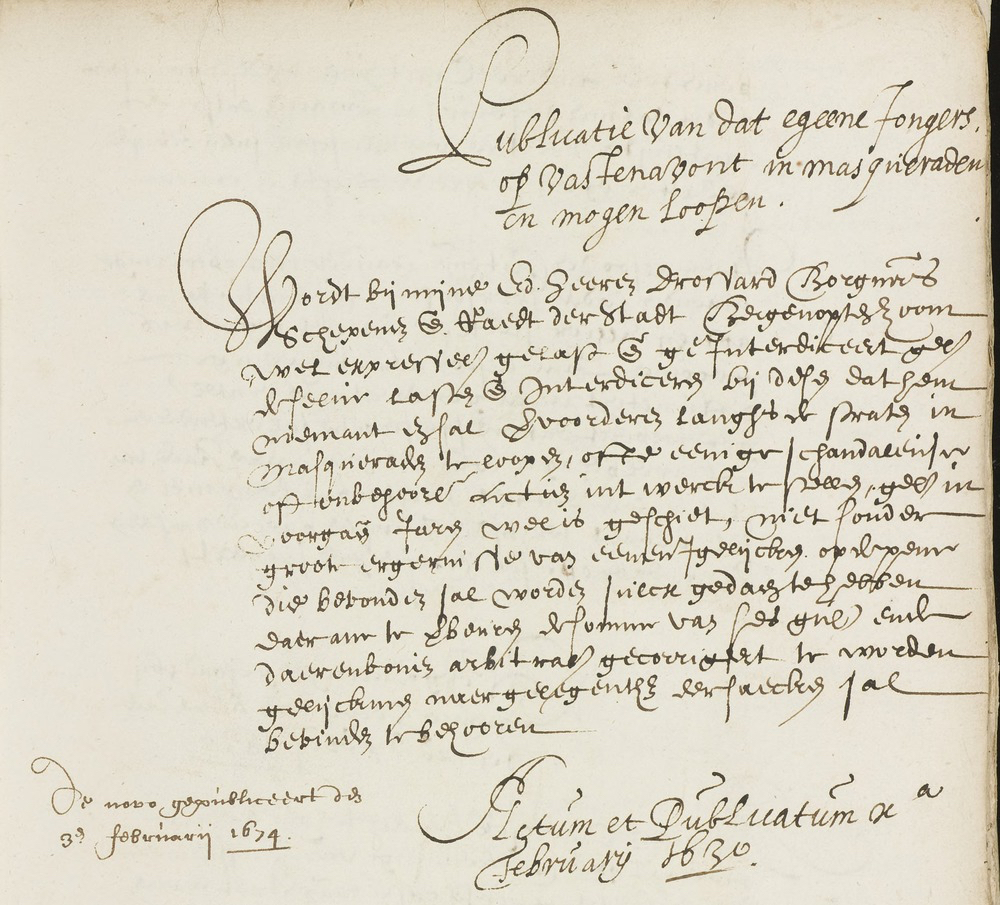 Publicatie van dat egeene Jongers,
op vastenavont in masqueraden
en mogen loopen.
Wordt bij mijne Ed. Heeren Drossard Borgmrs
Schepenen en Raedt der Stadt Bergenopten Zoom
wel expressel. gelast en geInterdiceert gel.
deselve lasten en Interdiceren bij desen dat hem
niemant en sal vervoorderen langhs de straten in
masqueraden te loopen, ofte eenige schandaleuse
oft onbehoorl. actien int werck te stellen, gel. in
voorgaen. Jaren wel is geschiet, niet sonder
groote ergernisse van eenen Jgelijcken op de pene
die bevonden sal worden sulcx gedaen te hebben
daer ane te verbeuren de somme van ses gul. ende
daerenboven arbitral. gecorrigeert te worden
gelijckmen naer gelegenth. der saecken sal
bevinden te behooren
Actum et Publicatum xa
February 1630.
De novo gepubliceert den
3en februarij 1674.